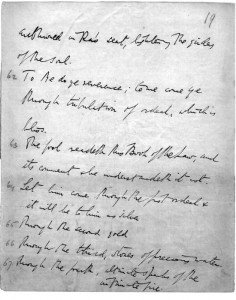 19
enthroned in this seat, lightening the girders
of the soul.
62 To Me do ye reverence; to me come ye
through tribulation of ordeal, which is
bliss.
63 The fool readeth this Book of the Law, and
its comment & he understandeth it not.
64 Let him come through the first ordeal &
it will be to him as silver
65 Through the second gold
66 Through the third, stones of precious water.
67 Through the fourth, ultimate sparks of the
intimate fire.